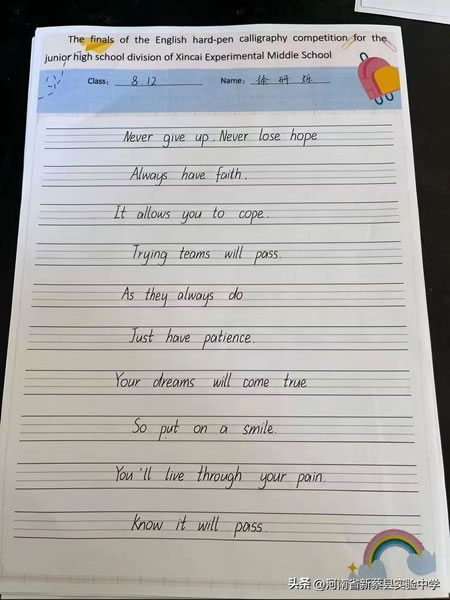 The finals of the English hard-pen calligraphy competition for the
junior high school division of Xincai Experimental Middle School
Class: 8.12 Name: 徐研烁
Never give up. Never lose hope
Always have faith.
It allows you to cope.
Trying teams will pass.
As they always do
Just have patience.
Your dreams will come true
So put on a smile.
You'll live through your pain.
Know it will pass.
头条 @河南省新蔡县实验中学